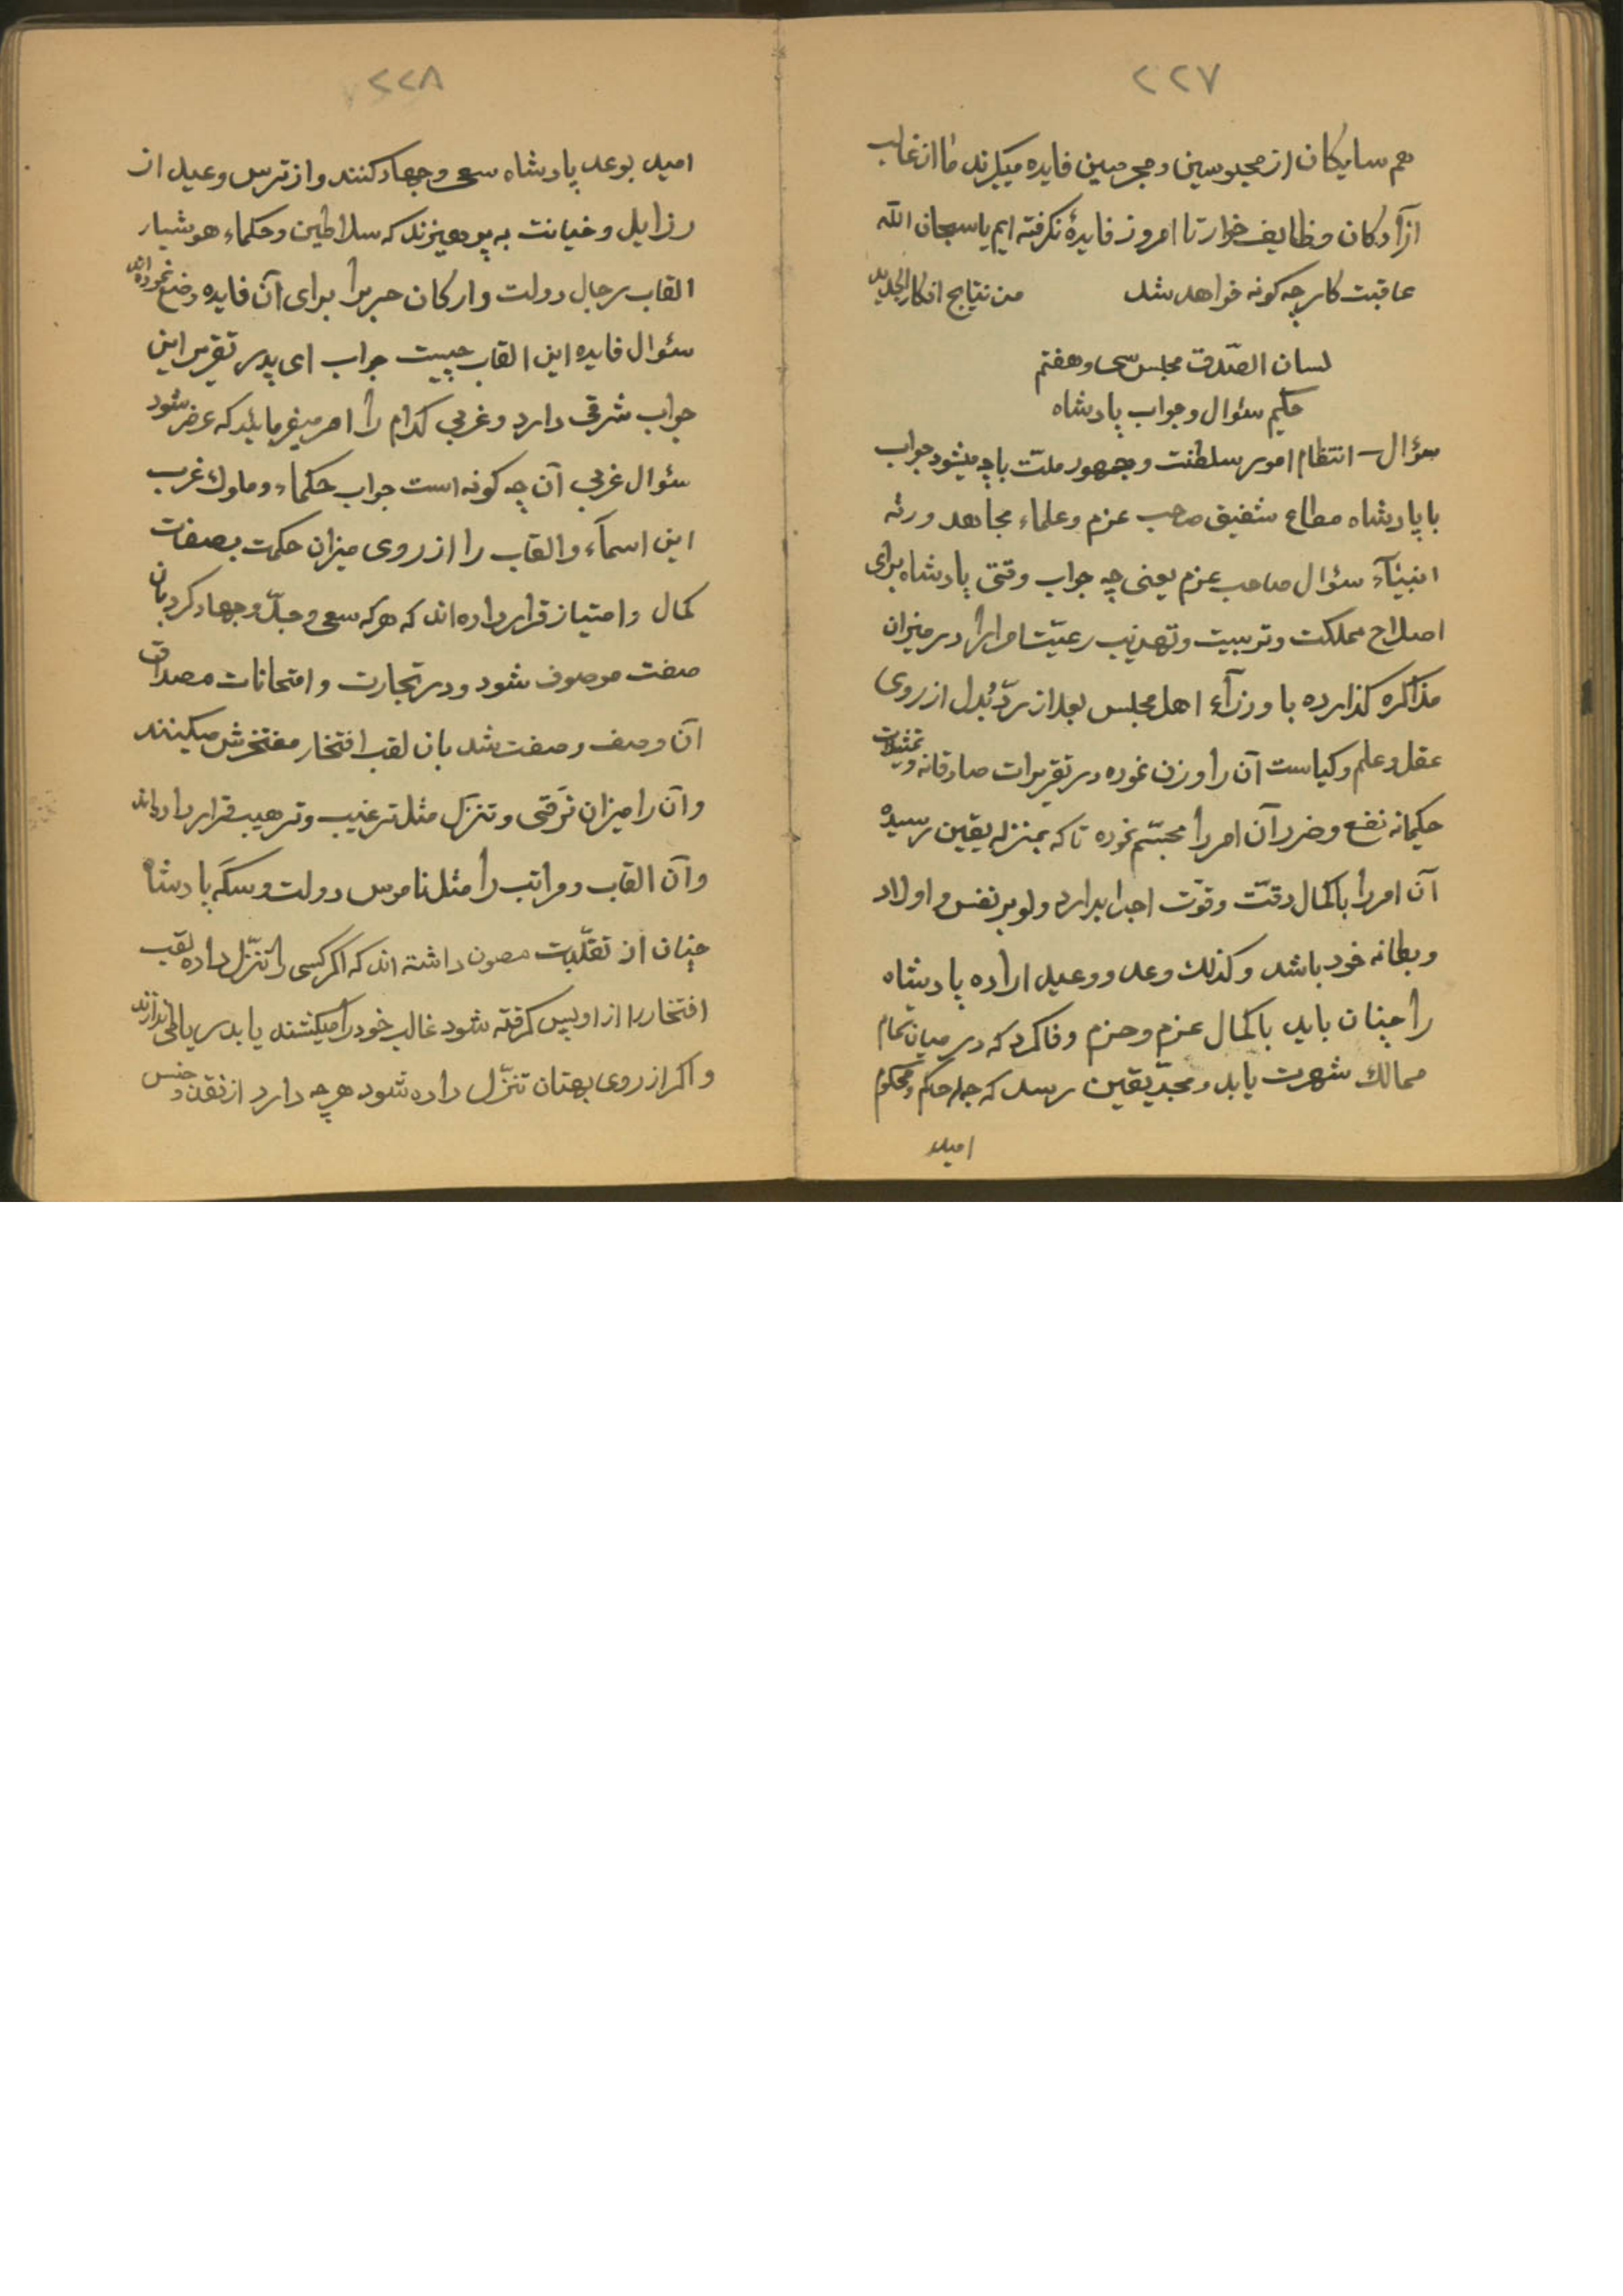 ٢٢٧
هم سایکان از محبوسین و مجرمین فایده میکیرند ما از غالب
آزادکان وظایف خوار تا امروز فایدهٔ نکرفته ایم یا سبحان الله
عاقبت کار چه کونه خواهد شد من نتایج افکار الجدید
لسان الصّدق مجلس سی و هفتم
حکیم سئوال و جواب پادشاه
سؤال – انتظام امور سلطنت و جمهور ملّت با چه میشود جواب
با پادشاه مطاع شفیق صاحب عزم و علماء مجاهد ورثه
انبیآء سئوال صاحب عزم یعنی چه جواب وقتی پادشاه برای
اصلاح مملکت و تربیت و تهذیب رعیّت امرا را در میزان
مذاکره کذارده با وزرآء اهل مجلس بعد از ردّ بُدل از روی
عقل و علم و کیاست آن را وزن نموده در تقریرات صادقانه و تمثیلات
حکیمانه نفع و ضرر آن امر را مجسّم نموده تا که بمنزله یقین رسیده
آن امر را با کمال دقّت و قوّت اجرا بدارد ولو بر نفس و اولاد
و بطانه خود باشد و کذلك وعد و وعید اراده پادشاه
را چنان باید با کمال عزم و حزم وفا کرد که در میان تمام
ممالك شهرت یابد و بحدّ یقین رسد که جمله حاکم و محکوم
امید
٢٢٨
امید بوعد پادشاه سعی و جهاد کنند و از ترس وعید از
رزایل و خیانت به پرهیزند که سلاطین و حکماء هوشیار
القاب رجال دولت و ارکان حرب را برای آن فایده وضع نموده اند
سئوال فایده این القاب چیست جواب ای پدر تقریر این
جواب شرقی دارد و غربی کدام را امر میفرمایند که عرض شود
سئوال غربی آن چه کونه است جواب حکماء و ملوك غرب
این اسمآء و القاب را از روی میزان حکمت بصفات
کمال و امتیاز قرار داده اند که هر که سعی و جدّ و جهاد کرد بآن
صفت موصوف شود و در تجارت و امتحانات مصداق
آن وصف و صفت شد بان لقب افتخار مفتخرش میکنند
و آن را میزان ترقّی و تنزّل مثل ترغیب و ترهیب قرار داده اند
و آن القاب و مراتب را مثل ناموس دولت و سکّه پادشاه
چنان از تقلّبات مصون داشته اند که اکر کسی را تنزّل داده لقب
افتخار را از او پس کرفته شود غالب خود را میکشند یا بدریا می اندازند
و اکر از روی بهتان تنزّل داده شود هر چه دارد از نقد و جنس